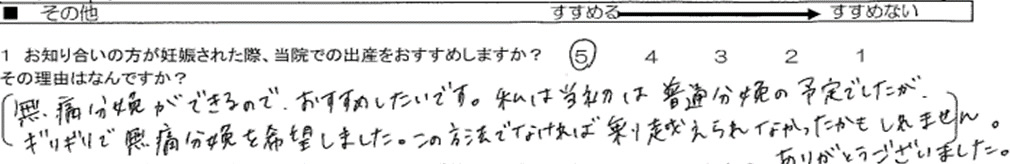 ■ その他 すすめる すすめない
1 お知り合いの方が妊娠された際、当院での出産をおすすめしますか? 5 4 3 2 1
その理由はなんですか?
(無痛分娩ができるので、おすすめしたいです。私は当初は普通分娩の予定でしたが、
ギリギリで無痛分娩を希望しました。この方法でなければ乗り越えられなかったかもしれません。)
ありがとうございました。